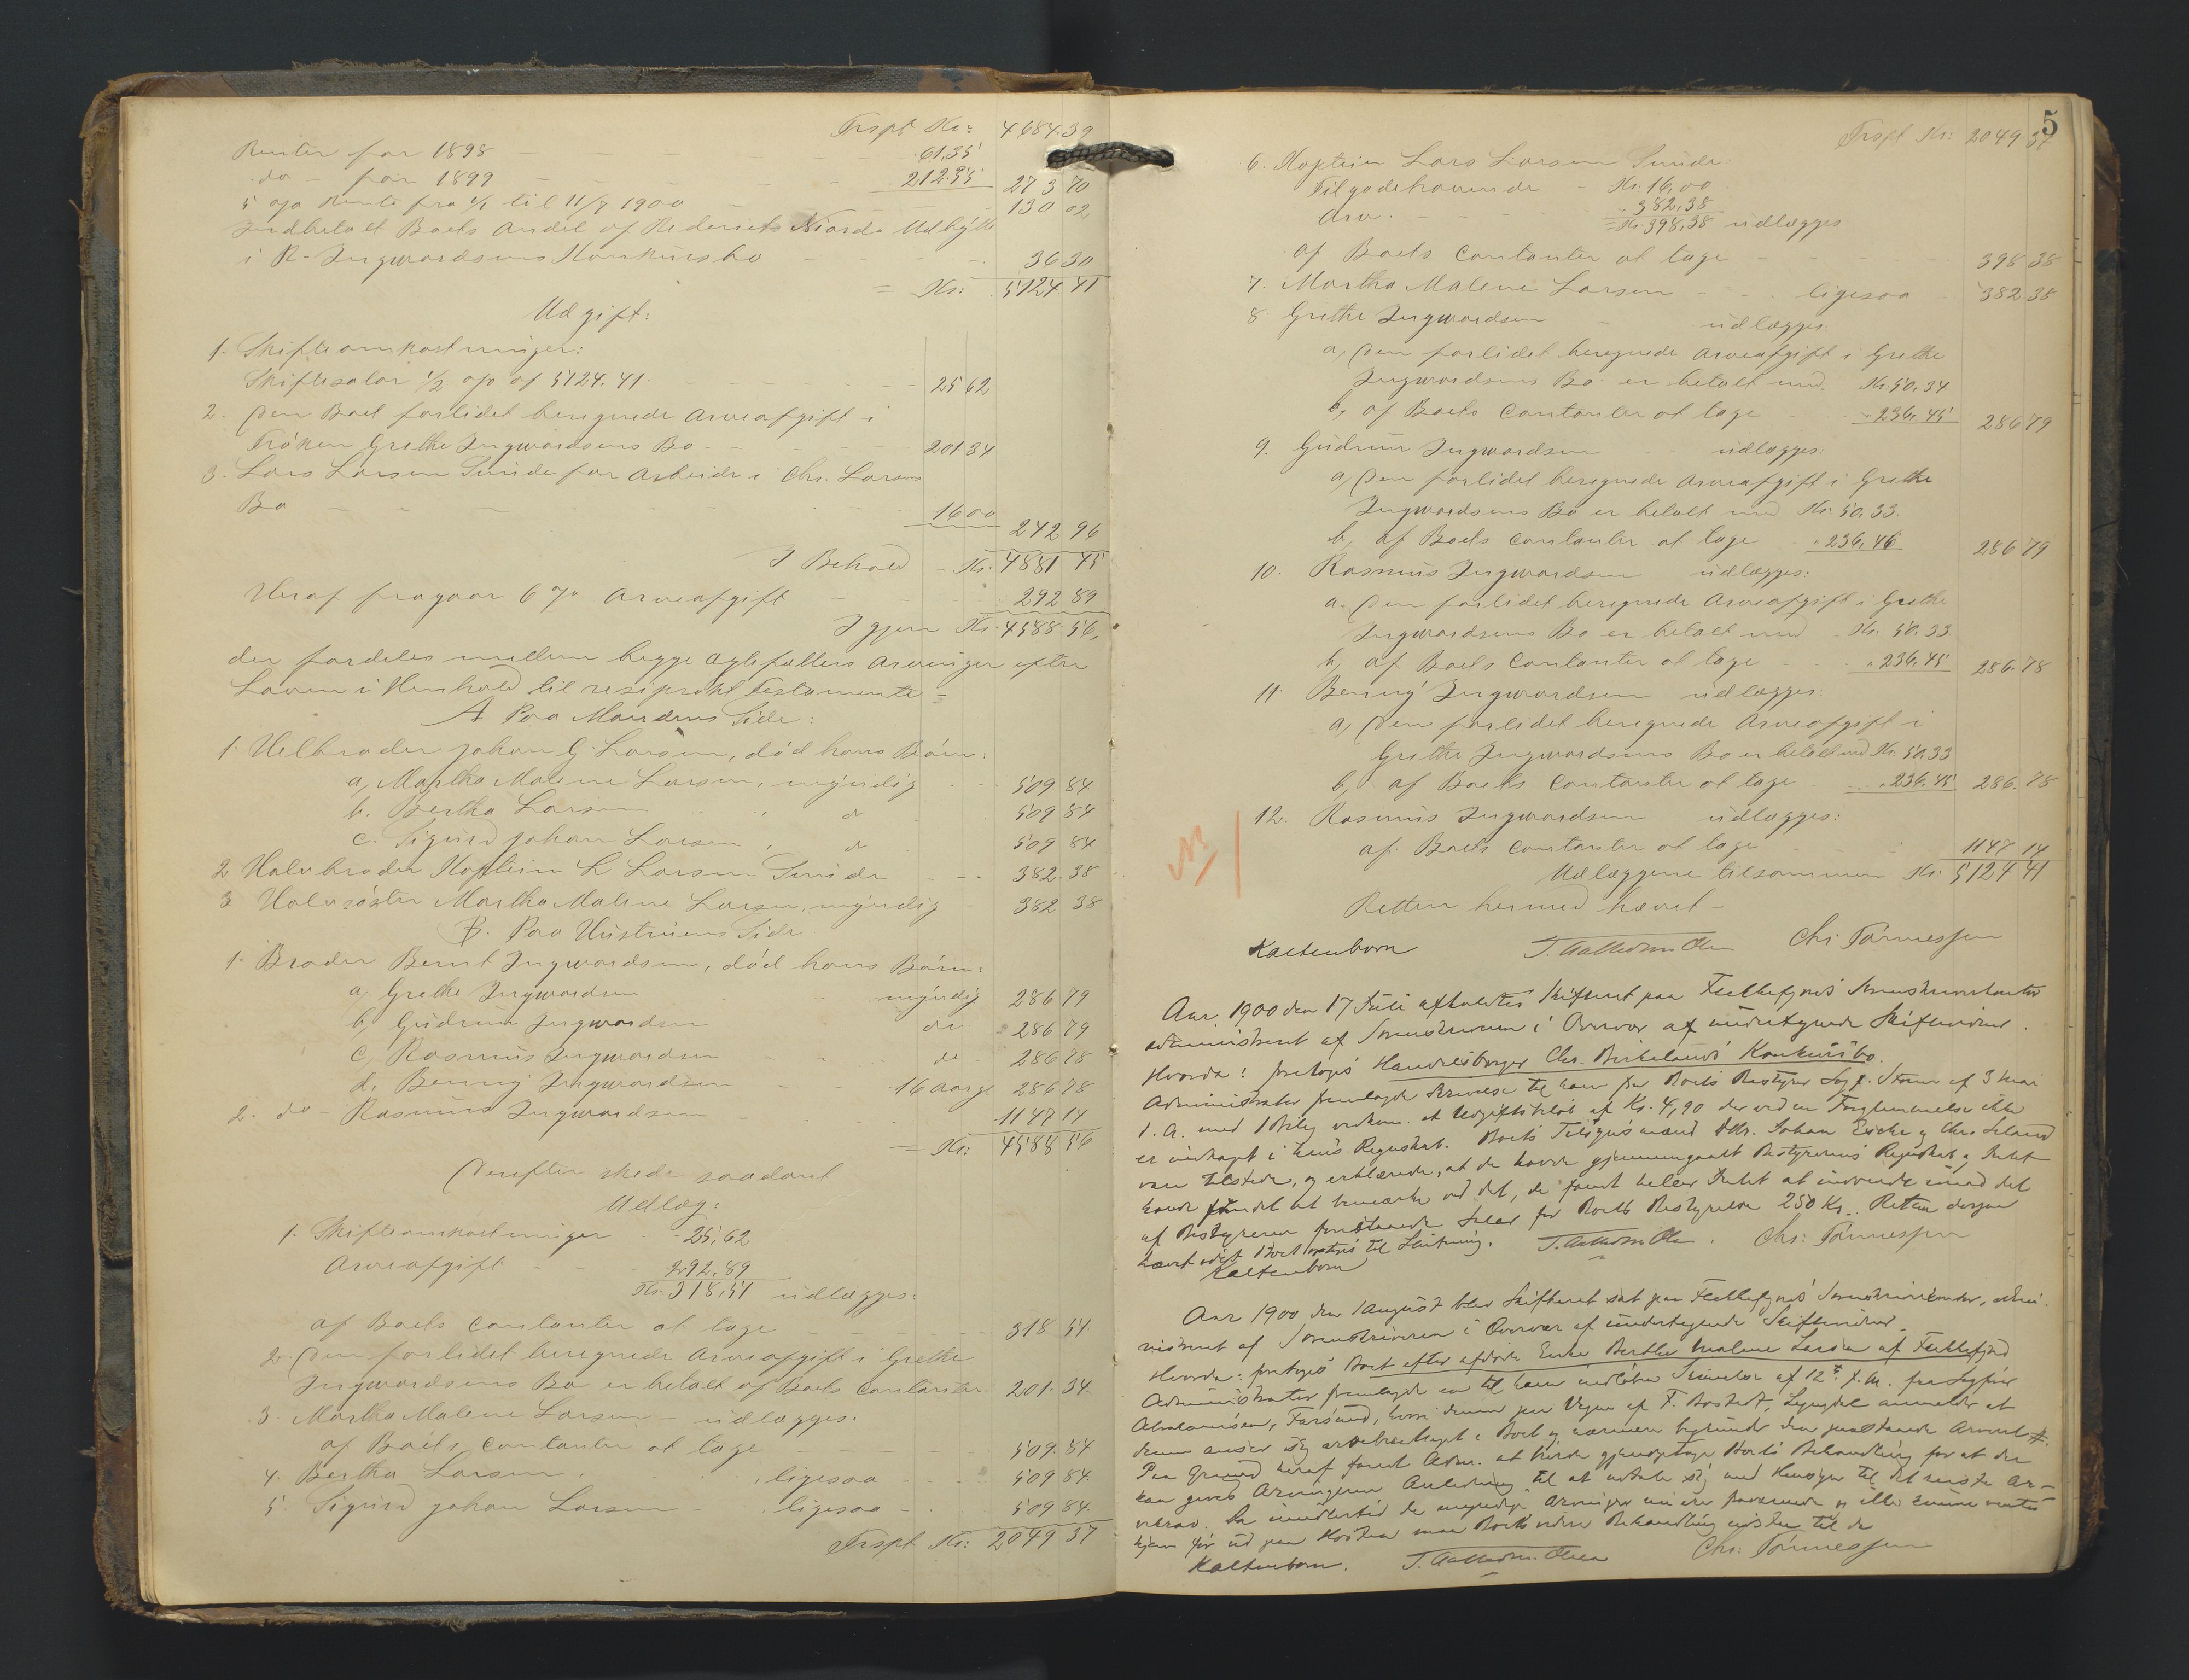 Trspt Kr: 4684.39
Renter for 1898 61,35
do - for 1899 212.35 273 70
5 o/o Rente fra 1/1 til 11/7 1900 130 02
Indbetalt Boets Andel af Rederiets Niords Udbytte
i R. Ingwardsens Konkursbo 36 30
= Kr: 5124 41
Udgift:
1. Skifteomkostninger:
Skiftesalær 1/2 o/o af 5124.41 25 62
2. Den Boet forlidet beregnede Arveafgift i
Frøken Grethe Ingwardsens Bo 201 34
3. Lars Larsen Sunde for Arbeide i Chr. Larsens
Bo 16 00 242 96
I Behold Kr. 4881 45
Heraf fragaar 6 o/o Arveafgift 292 89
Igjen Kr. 4588.56,
der fordeles mellem begge Ægtefællers Arvinger efter
Loven i Henhold til resiprokt Testamente -
A Paa Mandens Side:
1. Helbroder Johan G. Larsen, død hans Børn:
a, Martha Malene Larsen, myndig 509 84
b. Bertha Larsen do 509 84
c. Sigurd Johan Larsen, do 509 84
2 Halvbroder Kaptein L Larsen Sunde 382.38
3 Halvsøster Martha Malene Larsen, myndig 382 38
B. Paa Hustruens Side
1. Broder Bernt Ingwardsen, død hans Børn:
a, Grethe Ingwardsen myndig 286 79
b, Gudrun Ingwardsen do 286 79
c, Rasmus Ingwardsen do 286 78
d. Benny Ingwardsen 16 Aar gl 286 78
2. do - Rasmus Ingwardsen 1147 14
= Kr: 4588 56
Derefter skede saadant
Udlæg:
1. Skifteomkostninger 25,62
Arveafgift 292.89
Kr. 318,51 udlægges:
af Boets Contanter at tage 318 51.
2. Den forlidet beregnede Arveafgift i Grethe
Ingwardsens Bo er betalt af Boets Contanter 201.34.
3 Martha Malene Larsen - udlægges.
af Boets Contanter at tage 509.84
4. Bertha Larsen, ligesaa 509 84.
5. Sigurd Johan Larsen - ligesaa - 509 84.
Trspt Kr: 2049 37
5
Trspt Kr: 2049.37
6. Kaptein Lars Larsen Sunde
Tilgodehavende - Kr. 16,00
Arv. 382,38
= Kr. 398,38 udlægges
af Boets Contanter at tage 398 38
7. Martha Malene Larsen ligesaa 382 38
8 Grethe Ingwardsen udlægges.
a, Den forlidet beregnede Arveafgift i Grethe
Ingwardsens Bo er betalt med Kr. 50,34
b, af Boets Contanter at tage 236,45 286 79
9. Gudrun Ingwardsen udlægges:
a, Den forlidet beregnede Arveafgift i Grethe
Ingwardsens Bo er betalt med Kr. 50.33.
b, af Boets Contanter at tage 236,46 286 79
10. Rasmus Ingwardsen udlægges:
a. Den forlidet beregnede Arveafgift i Grethe
Ingwardsens Bo er betalt med Kr. 50.33
b, af Boets Contanter at tage 236,45 286.78
11. Benny Ingwardsen udlægges:
a, Den forlidet beregnede Arveafgift i
Grethe Ingwardsens Bo er betalt med Kr. 50,33
b, af Boets Contanter at tage 236,45 286.78
12. Rasmus Ingwardsen udlægges:
af Boets Contanter at tage 1147 14
Udlæggene tilsammen Kr: 5124 41
Retten hermed hævet -
Kaltenborn Chr: Tønnessen
Aar 1900 den 17 Juli afholdtes Skifteret paa Flekkefjords Sorenskriverkontor
administreret af Sorenskriveren i Overvær af undertegnede Skiftevidner.
Hvorda: foretoges Handelsborger Chr. Birkelands Konkursbo.
Administrator fremlagde Skrivelse til ham fra Boets Bestyrer Sagf. Stern af 3 Mai
d. A. med 1 Bilag vedkom. et Udgiftsbeløb af Kr. 4,90 der ved en Forglemmelse ikke
er indtaget i hans Regnskab. Boets Tilsynsmænd Johan Eicke og Chr. Seland
vare tilstede, og erklærede, at de havde gjennemgaaet Bestyrerens Regnskab og Intet
havde fundet at bemærke ved det, de fandt heller Intet at indvende imod det
af Bestyreren foreslaaede Salær for Boets Bestyrelse 250 Kr. Retten dermed
hævet idet Boet til Slutning. Chr: Tønnessen
Kaltenborn
Aar 1900 den 1 August blev Skifteret sat paa Flekkefjords Sorenskriverkontor, admi-
nistreret af Sorenskriveren i Overvær af undertegnede Skiftevidner.
Hvorda: foretoges Boet efter afdøde Enke Berthe Malene Larsen af Flekkefjord
Administrator fremlagde en til ham indløben Skrivelse af 12te f. M. fra Sagfører
Abrahamsen, Farsund, hvori denne paa Vegne af F. Bostedt, Lyngdal anmelder at
denne anser sig arveberettiget i Boet og nærmere begrunder den paastaaede Arveret.
Paa Grund heraf fandt Adm. at burde gjenoptage Boets Behandling for at der
kan gives Arvingerne Anledning til at udtale sig med Hensyn til det reiste Ar-
vekrav. Da imidlertid de myndige Arvinger nu ere fraværende og ikke kunne ventes
hjem før ud paa Høsten maa Boets videre Behandling udstaa til da
Kaltenborn. Chr: Tønnessen